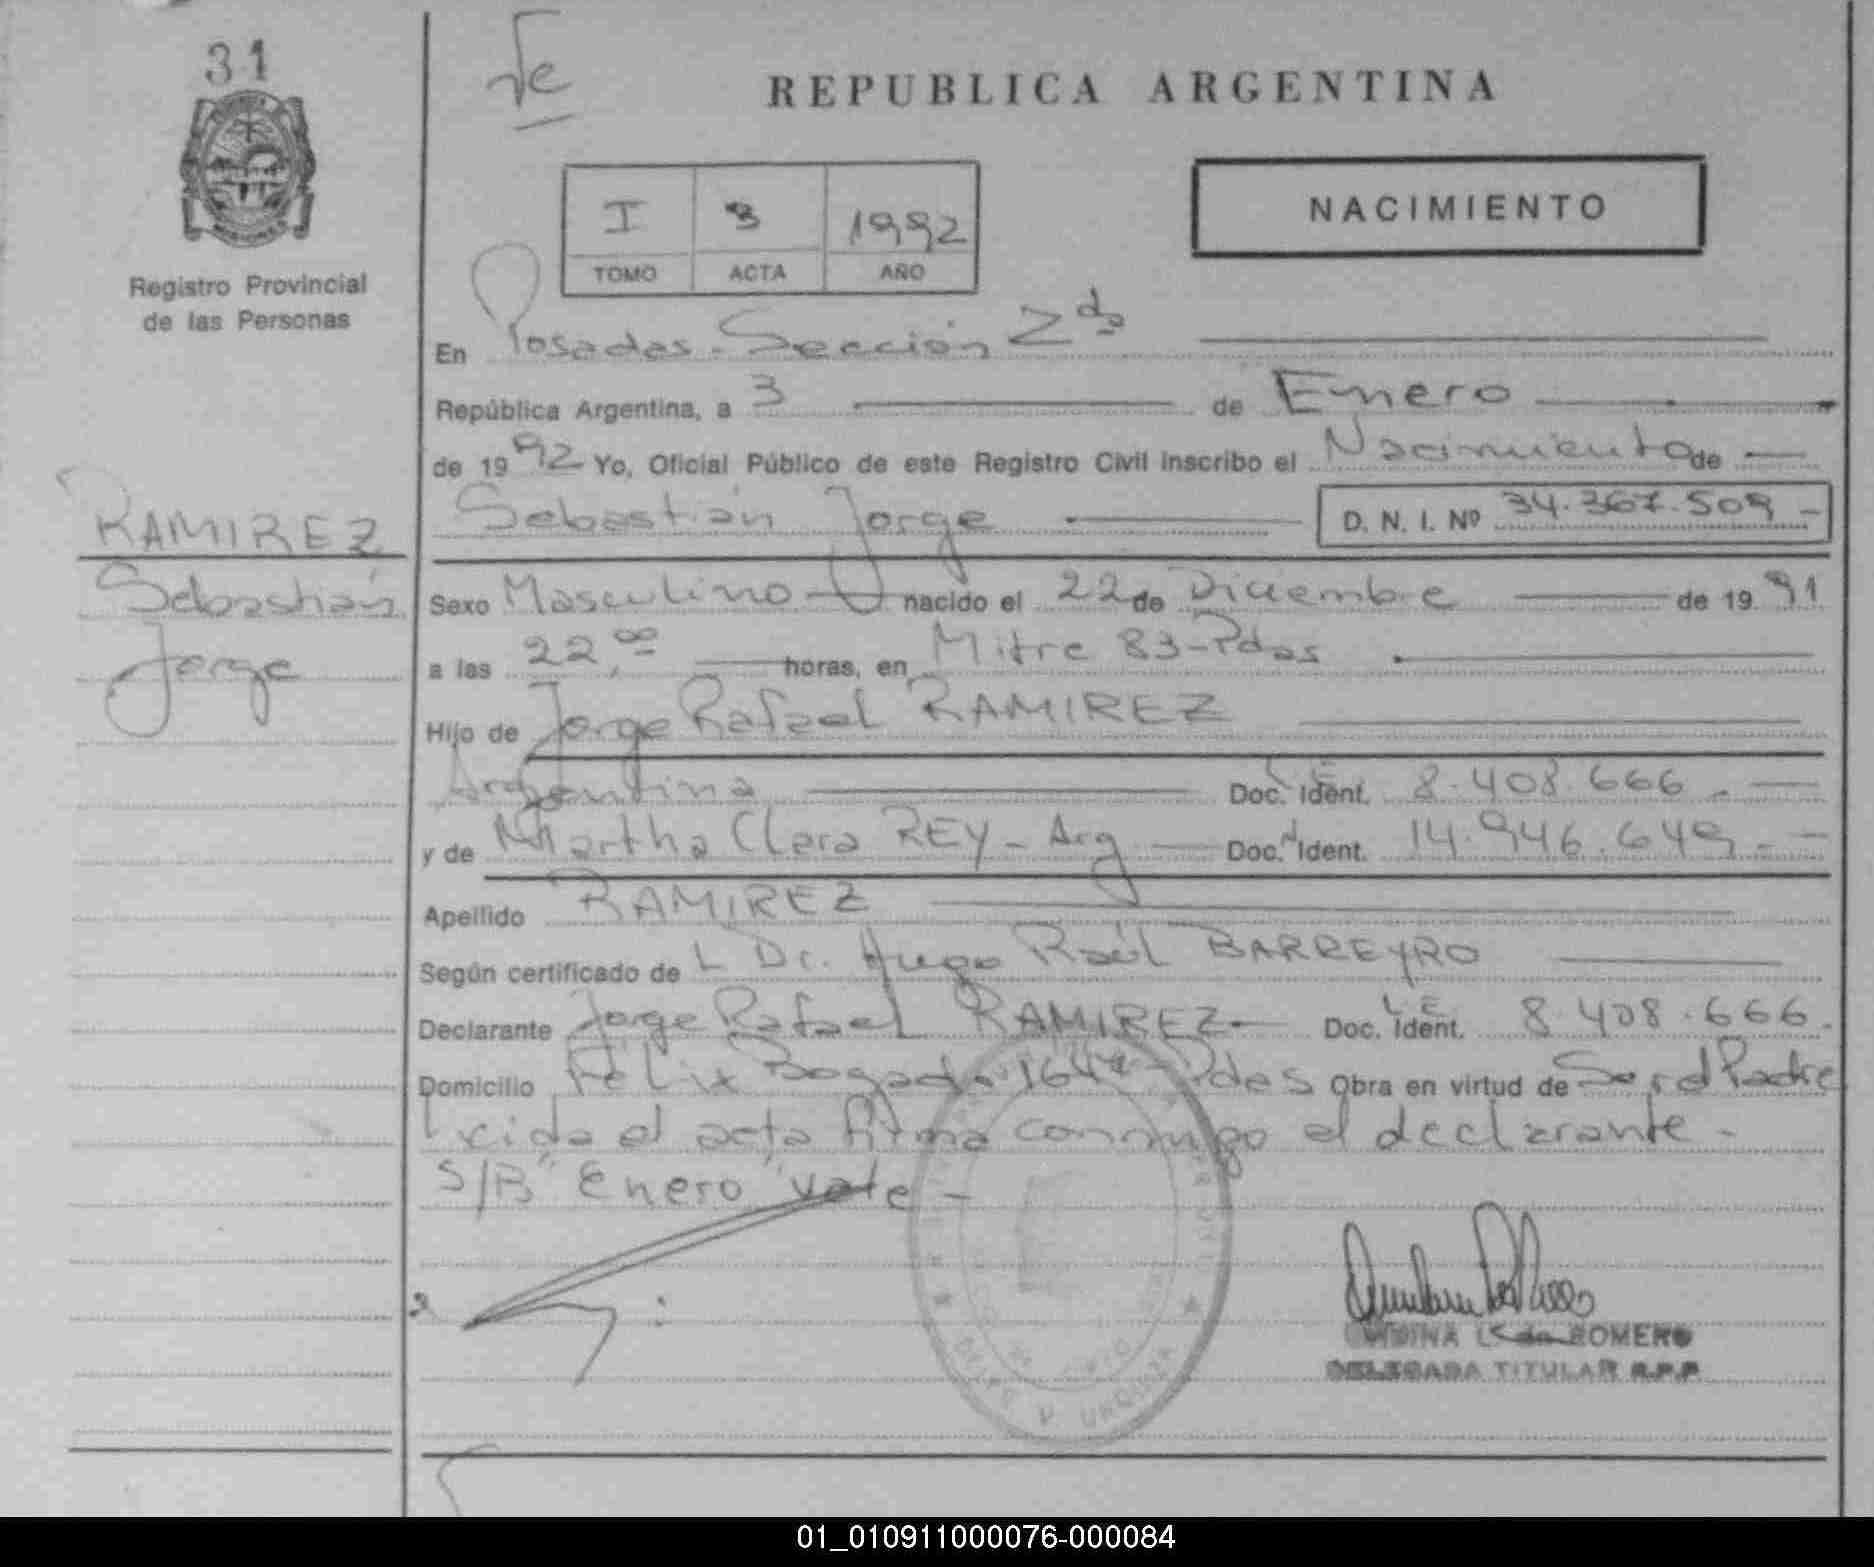 31
Registro Provincial
de las Personas
RAMIREZ
Sebastián
Jorge
REPUBLICA ARGENTINA
NACIMIENTO
I 3 1992
TOMO ACTA AÑO
En Posadas - Sección 2da
República Argentina, a 3 de Enero
de 1992 Yo, Oficial Público de este Registro Civil inscribo el Nacimiento de
Sebastián Jorge D. N. I. Nº 34.367.509 -
Sexo Masculino nacido el 22 de Diciembre de 1991
a las 22,00 horas, en Mitre 83 - Pdas
Hijo de Jorge Rafael RAMIREZ
Argentina Doc. Ident. L.E. 8.408.666. -
y de Martha Clara REY - Arg Doc. Ident. 14.946.649. -
Apellido RAMIREZ
Según certificado de L Dr. Hugo Raúl BARREYRO
Declarante Jorge Rafael RAMIREZ - Doc. Ident. L.E. 8.408.666.
Domicilio Félix Bogado Pdas Obra en virtud de Ser el Padre
Leida el acta firma conmigo el declarante -
S/B "Enero" vale -
ROMERO
DELEGADA TITULAR R.P.P.
01_010911000076-000084